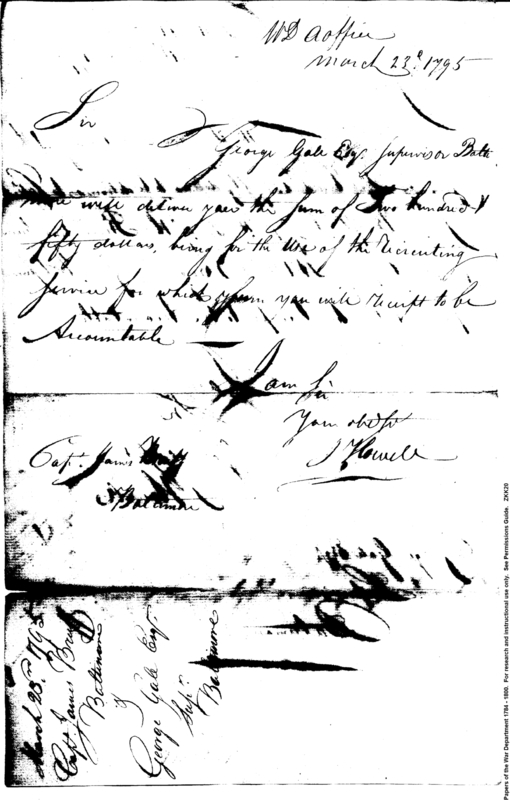 WD aoffice
March 23d. 1795
Sir
George Gale Esq. Supervisor Balti
more will deliver you the sum of Two hundred &
fifty dollars, being for the use of the recruiting
service for which sum you will receipt to be
Accountable
I am Sir
Your obdst
J Howell
Capt. James
Baltimore
March 23rd 1795
Capt James
Baltimore
George Gale Esq.
Supr.
Baltimore
Papers of the War Department 1784 - 1800. For research and instructional use only. See Permissions Guide. ZKK20